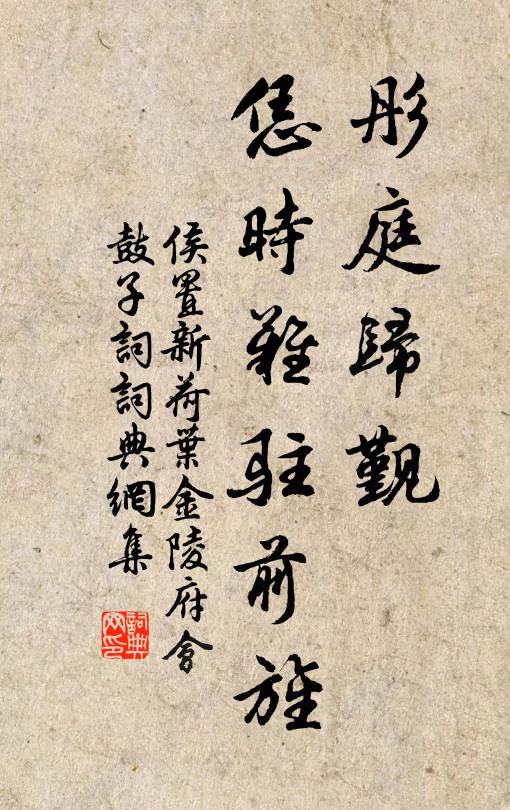 彤庭歸覲
恁時難駐前旌
侯置新荷葉金陵府會
鼓子詞詞典網集
詞典
网印